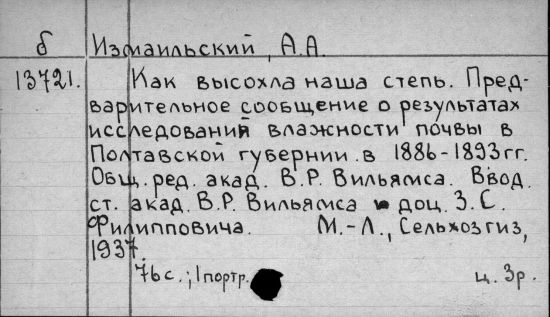 б Измаильский, А.А.
13721. Как высохла наша степь. Пред-
варительное сообщение о результатах
исследований влажности почвы в
Полтавской губернии в 1886-1893 гг.
Общ. ред. акад. В.Р. Вильямса. Ввод.
ст. акад. В.Р. Вильямса и доц. З.С.
Филипповича. М.-Л., Сельхозгиз,
1937.
76 с.; 1 портр. ц. 3р.